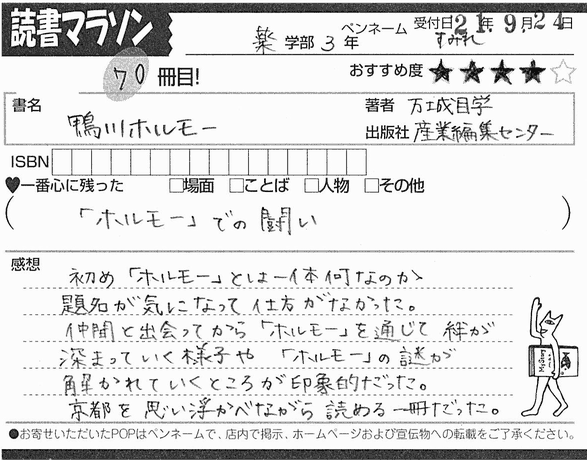 読書マラソン
薬 学部 3 年
ペンネーム すみれ
受付日 21年 9月 24日
70 冊目!
おすすめ度 ★★★★☆
書名 鴨川ホルモー
著者 万城目学
出版社 産業編集センター
ISBN
♥一番心に残った □場面 □ことば □人物 □その他
(「ホルモー」での闘い)
感想
初め「ホルモー」とは一体何なのか
題名が気になって仕方がなかった。
仲間と出会ってから「ホルモー」を通じて絆が
深まっていく様子や「ホルモー」の謎が
解かれていくところが印象的だった。
京都を思い浮かべながら読める一冊だった。
●お寄せいただいたPOPはペンネームで、店内で掲示、ホームページおよび宣伝物への転載をご了承ください。